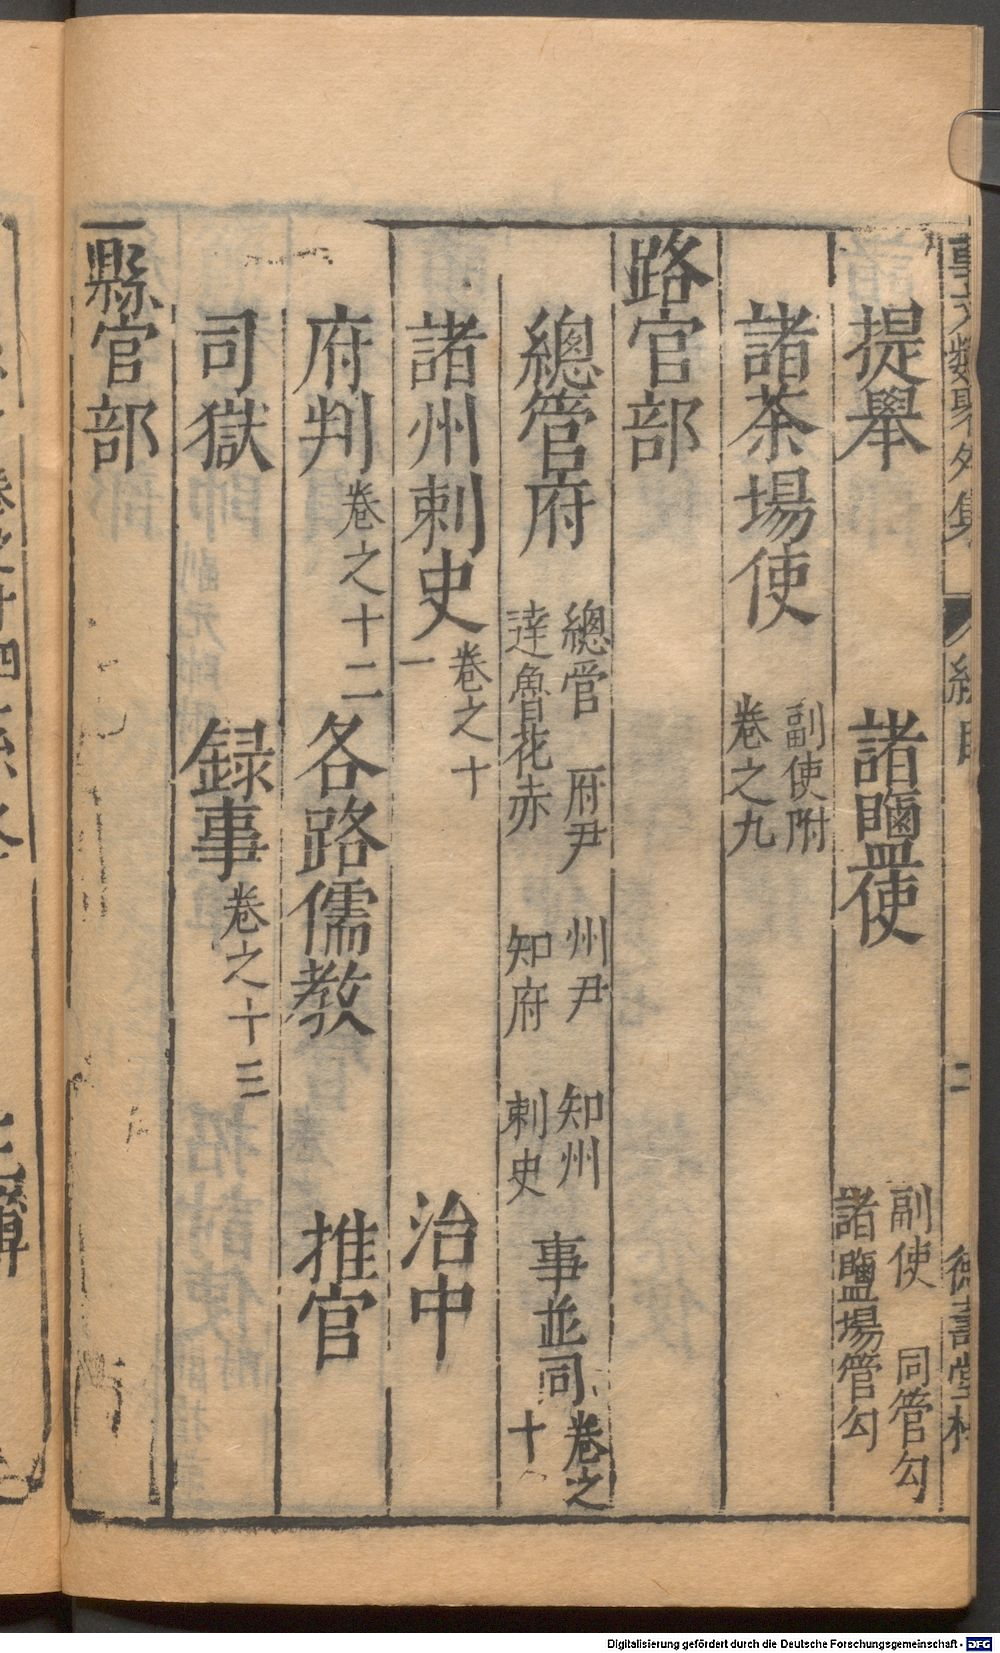 事文類聚外集 總目 二 德壽堂梓
提舉 諸鹽使 副使 同管勾 諸鹽場管勾
諸茶場使 副使附 卷之九
路官部
總管府 總管 府尹 州尹 知州 達魯花赤 知府 刺史 事並同 卷之十
諸州刺史 卷之十一 治中
府判 卷之十二 各路儒教 推官
司獄 録事 卷之十三
縣官部
卷之十四
主簿
Digitalisierung gefördert durch die Deutsche Forschungsgemeinschaft - DFG